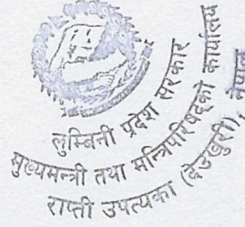 लुम्बिनी प्रदेश सरकार
मुख्यमन्त्री तथा मन्त्रिपरिषद्को कार्यालय
राप्ती उपत्यका (देउखुरी), नेपाल